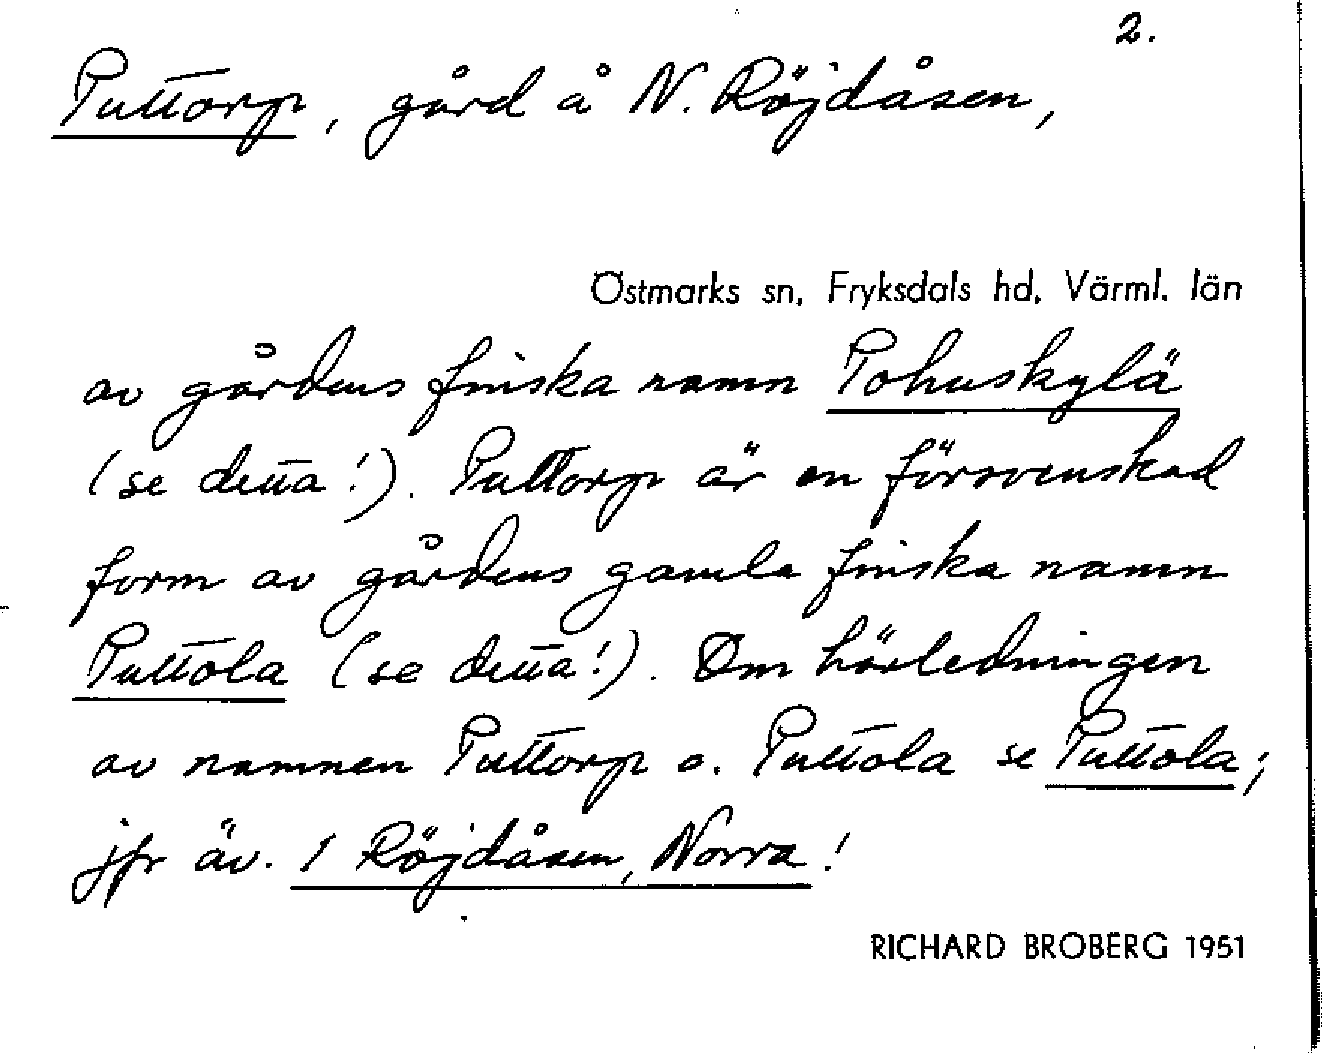 2.
Puttorp, gård å N. Röjdåsen,
Östmarks sn, Fryksdals hd, Värml. län
av gårdens finska namn Pohuskylä
(se detta!). Puttorp är en försvenskad
form av gårdens gamla finska namn
Puttola (se detta!). Om härledningen
av namnen Puttorp o. Puttola se Puttola;
jfr äv. 1 Röjdåsen, Norra!
RICHARD BROBERG 1951